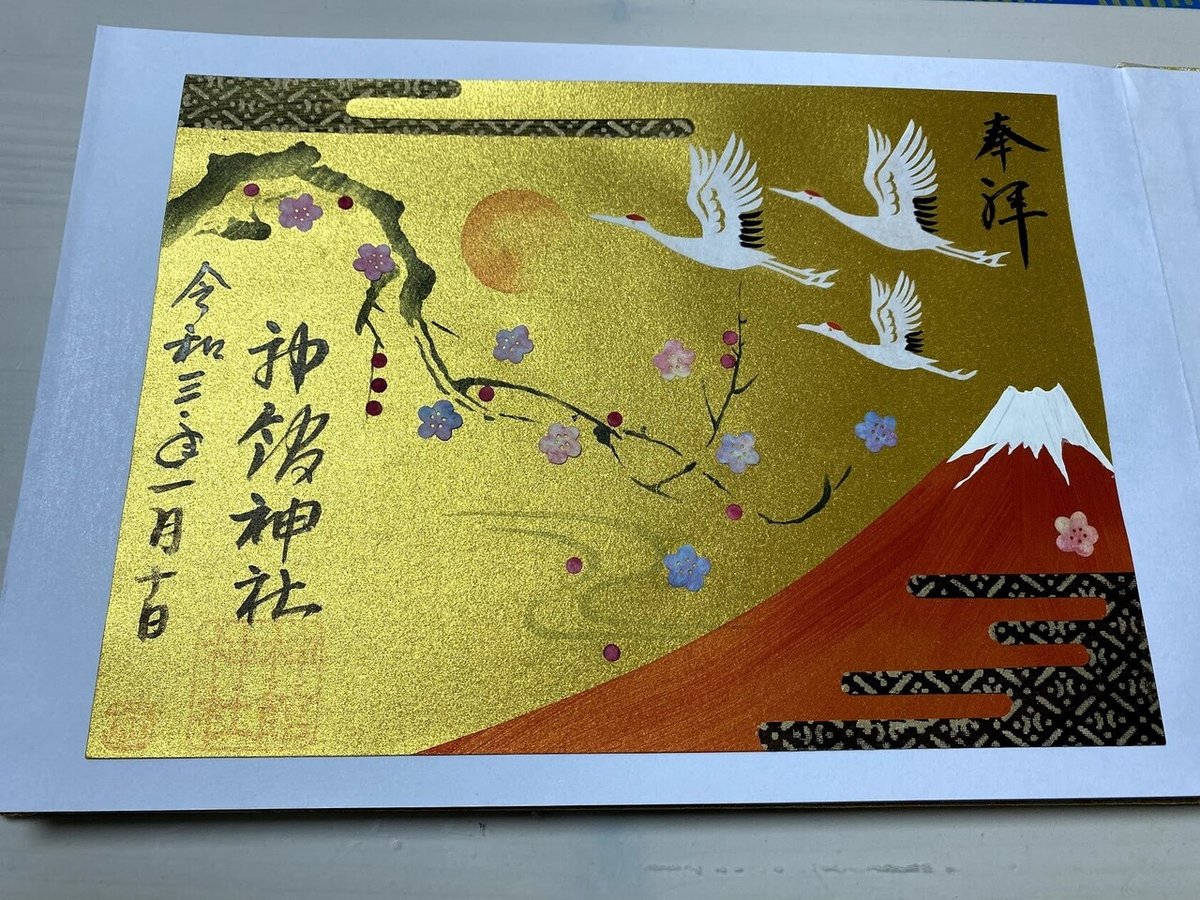 奉拝
神館神社
令和三年一月十日